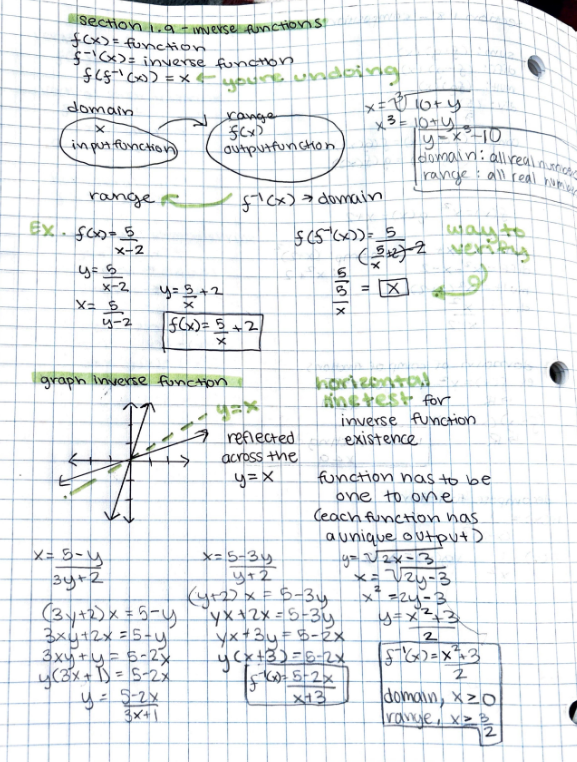 section 1.9 - inverse functions
f(x) = function
f⁻¹(x) = inverse function
f(f⁻¹(x)) = x ← you're undoing
domain
x
input function
range
f(x)
output function
range ← f⁻¹(x) → domain
x = ∛10+y
x³ = 10+y
y = x³-10
domain: all real numbers
range: all real numbers
Ex. f(x) = 5/(x-2)
y = 5/(x-2)
x = 5/(y-2)
y = 5/x + 2
f(x) = 5/x + 2
f(f⁻¹(x)) = 5/((5/x+2)-2)
5/(5/x) = x
way to
verify
graph inverse function
y=x
reflected
across the
y=x
horizontal
line test for
inverse function
existence
function has to be
one to one
(each function has
a unique output)
x = (5-y)/(3y+2)
(3y+2)x = 5-y
3xy+2x = 5-y
3xy+y = 5-2x
y(3x+1) = 5-2x
y = (5-2x)/(3x+1)
x = (5-3y)/(y+2)
(y+2)x = 5-3y
yx+2x = 5-3y
yx+3y = 5-2x
y(x+3) = 5-2x
f⁻¹(x) = (5-2x)/(x+3)
y = √2x-3
x = √2y-3
x² = 2y-3
y = (x²+3)/2
f⁻¹(x) = (x²+3)/2
domain, x≥0
range, x≥3/2